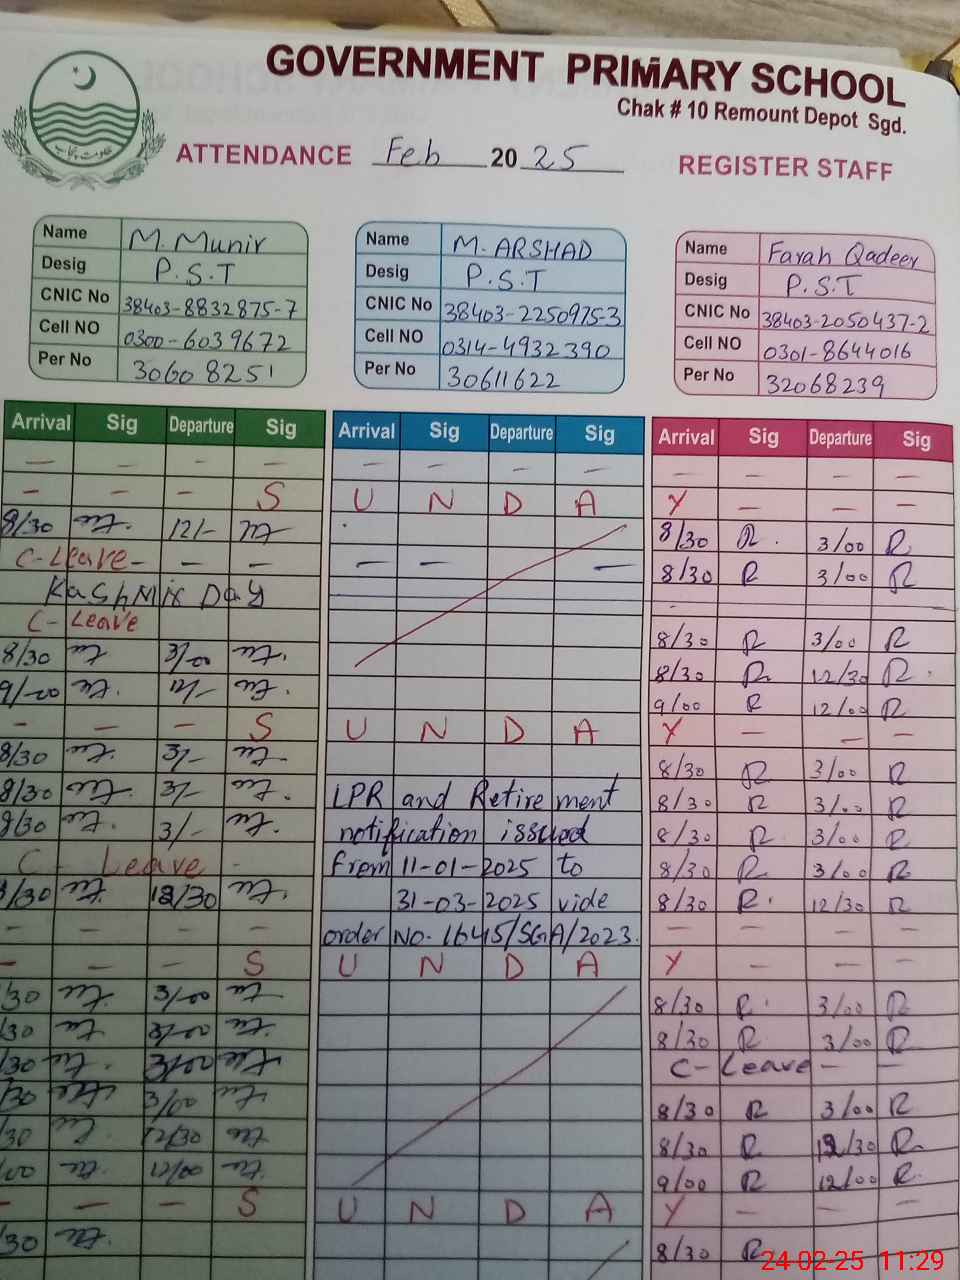 GOVERNMENT PRIMARY SCHOOL
Chak # 10 Remount Depot Sgd.
ATTENDANCE Feb 20 25 REGISTER STAFF
Name M. Munir
Desig P.S.T
CNIC No 38403-8832875-7
Cell NO 0300-6039672
Per No 30608251
Name M. ARSHAD
Desig P.S.T
CNIC No 38403-2250975-3
Cell NO 0314-4932390
Per No 30611622
Name Farah Qadeer
Desig P.S.T
CNIC No 38403-2050437-2
Cell NO 0301-8644016
Per No 32068239
Arrival Sig Departure Sig Arrival Sig Departure Sig Arrival Sig Departure Sig
— — — — — — — — — — — —
— — — S U N D A Y — — —
8/30 12/- 8/30 R. 3/00 R
C-Leave - — — — — — 8/30 R 3/00 R
Kashmir Day
C-Leave 8/30 R 3/00 R
8/30 3/00 8/30 R 12/30 R
9/00 12/- 9/00 R 12/00 R
— — — S U N D A Y — — —
8/30 3/- 8/30 R 3/00 R
8/30 3/- LPR and Retirement 8/30 R 3/00 R
8/30 3/- notification issued 8/30 R 3/00 R
C- Leave - from 11-01-2025 to 8/30 R 3/00 R
8/30 12/30 31-03-2025 vide 8/30 R. 12/30 R
— — — — order No. 1645/SGA/2023. — — — —
— — — S U N D A Y — — —
/30 3/00 8/30 R 3/00 R
/30 3/00 8/30 R 3/00 R
/30 3/00 C-Leave — —
/30 3/00 8/30 R 3/00 R
/30 12/30 8/30 R 12/30 R
/00 12/00 9/00 R 12/00 R
— — — S U N D A Y — — —
/30 8/30 R
24-02-25 11:29